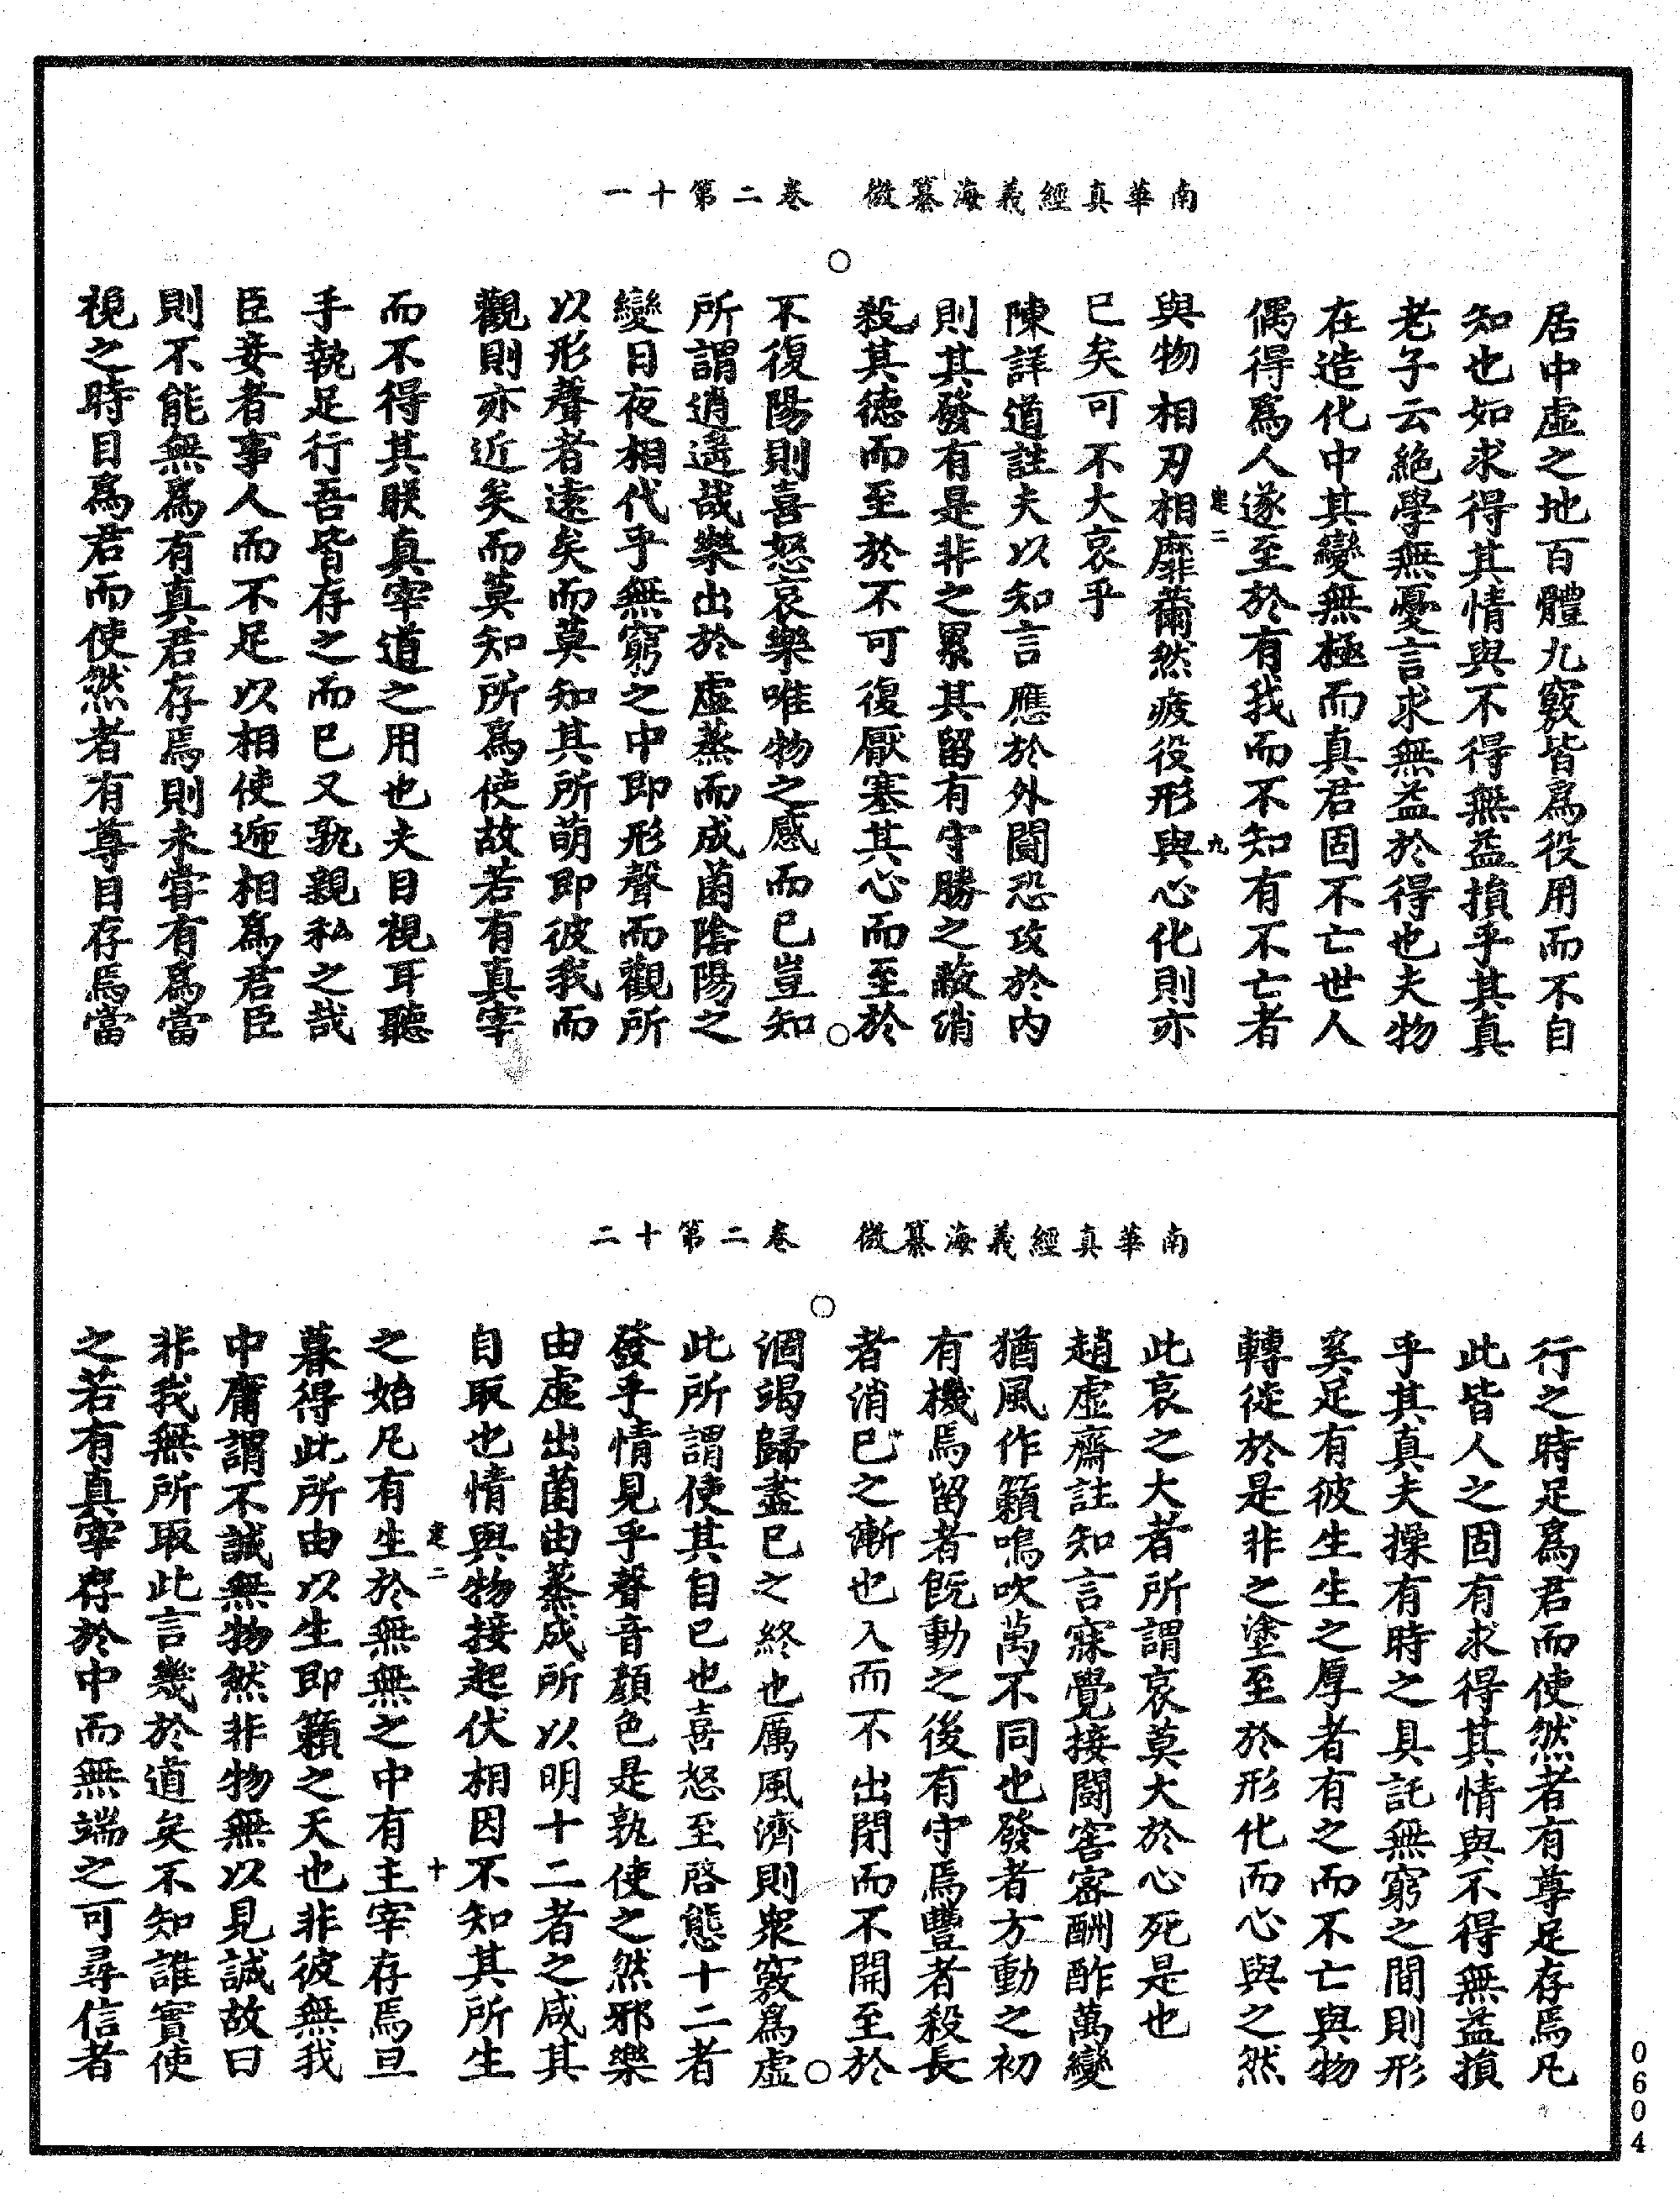 南華真經義海纂微　卷二第十一
居中虛之地百體九竅皆爲役用而不自
知也如求得其情與不得無益損乎其真
老子云絶學無憂言求無益於得也夫物
在造化中其變無極而真君固不亡世人
偶得爲人遂至於有我而不知有不亡者
定二　九
與物相刃相靡薾然疲役形與心化則亦
已矣可不大哀乎
陳詳道註夫以知言應於外鬪恐攻於内
則其發有是非之累其留有守勝之蔽消
殺其德而至於不可復厭塞其心而至於
不復陽則喜怒哀樂唯物之感而已豈知
所謂逍遥哉樂出於虛蒸而成菌陰陽之
變日夜相代乎無窮之中即形聲而觀所
以形聲者遠矣而莫知其所萌即彼我而
觀則亦近矣而莫知所爲使故若有真宰
而不得其眹真宰道之用也夫目視耳聽
手執足行吾皆存之而已又孰親私之哉
臣妾者事人而不足以相使遞相爲君臣
則不能無爲有真君存焉則未嘗有爲當
視之時目爲君而使然者有尊目存焉當
南華真經義海纂微　卷二第十二
行之時足爲君而使然者有尊足存焉凡
此皆人之固有求得其情與不得無益損
乎其真夫操有時之具託無窮之間則形
奚足有彼生生之厚者有之而不亡與物
轉徙於是非之塗至於形化而心與之然
此哀之大者所謂哀莫大於心死是也
趙虛齋註知言寐覺接鬪窖密酬酢萬變
猶風作籟鳴吹萬不同也發者方動之初
有機焉留者旣動之後有守焉豐者殺長
者消已之漸也入而不出閉而不開至於
涸竭歸盡已之終也厲風濟則衆竅爲虛
此所謂使其自已也喜怒至啓態十二者
發乎情見乎聲音顔色是孰使之然邪樂
由虛出菌由蒸成所以明十二者之咸其
自取也情與物接起伏相因不知其所生
定二　十
之始凡有生於無無之中有主宰存焉旦
暮得此所由以生即籟之天也非彼無我
中庸謂不誠無物然非物無以見誠故曰
非我無所取此言幾於道矣不知誰實使
之若有真宰存於中而無端之可尋信者
0604